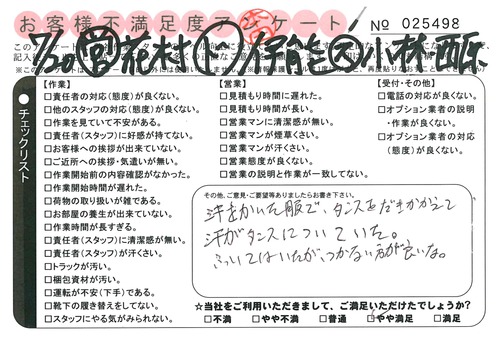 お客様不満足度アンケート
No 025498
7/30 営 花村 1 伊能 又 小林・西原
チェックリスト
【作業】
□責任者の対応(態度)が良くない。
□他のスタッフの対応(態度)が良くない。
□作業を見ていて不安がある。
□責任者(スタッフ)に好感が持てない。
□お客様への挨拶が出来ていない。
□ご近所への挨拶・気遣いが無い。
□作業開始前の内容確認がなかった。
□作業開始時間が遅れた。
□荷物の取り扱いが雑である。
□お部屋の養生が出来ていない。
□作業時間が長すぎる。
□責任者(スタッフ)に清潔感が無い。
□責任者(スタッフ)が汗くさい。
□トラックが汚い。
□梱包資材が汚い。
□運転が不安(下手)である。
□靴下の履き替えをしてない。
□スタッフにやる気がみられない。
【営業】
□見積もり時間に遅れた。
□見積もり時間が長い。
□営業マンに清潔感が無い。
□営業マンが煙草くさい。
□営業マンが汗くさい。
□営業態度が良くない。
□営業の説明と作業が一致してない。
【受付・その他】
□電話の対応が良くない。
□オプション業者の説明
・作業が良くない。
□オプション業者の対応
(態度)が良くない。
その他、ご意見・ご要望等ありましたらお書き下さい。
汗をかいた服で、タンスをだきかかえて
汗がタンスについていた。
ふいてはいたが、つかない方が良いな。
☆当社をご利用いただきまして、ご満足いただけたでしょうか?
□不満 □やや不満 □普通 □やや満足 □満足